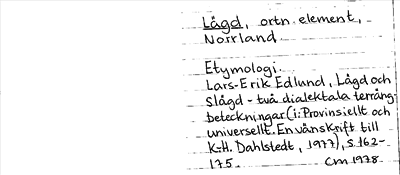 Lågd, ortn. element,
Norrland.
Etymologi.
Lars-Erik Edlund, Lågd och
Slågd - två dialektala terräng-
beteckningar (i: Provinsiellt och
universellt. En vänskrift till
K.-H. Dahlstedt, 1977), s. 162-
175.
CM 1978